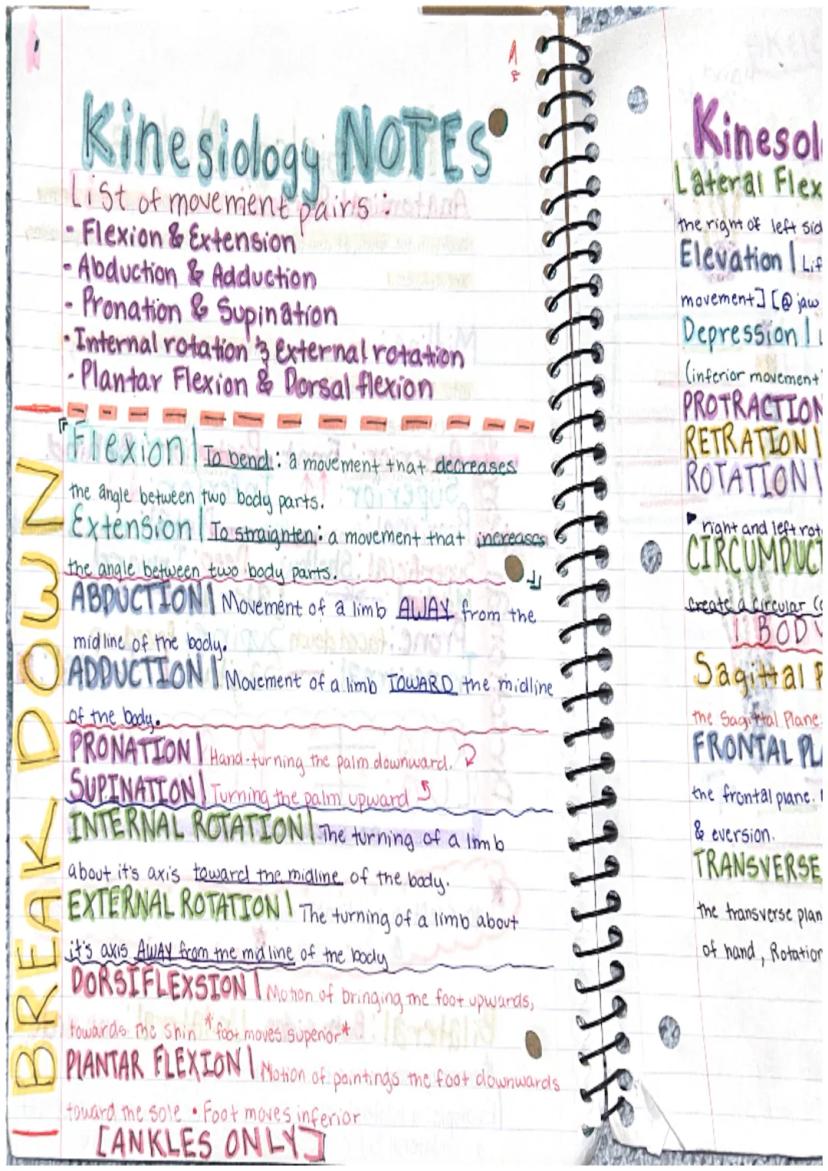 Kinesiology NOTES
List of movement pairs:
- Flexion & Extension
- Abduction & Adduction
- Pronation & Supination
- Internal rotation & External rotation
- Plantar Flexion & Dorsal flexion
BREAK DOWN
Flexion | To bend: a movement that decreases
the angle between two body parts.
Extension | To straighten: a movement that increases
the angle between two body parts.
ABDUCTION | Movement of a limb AWAY from the
midline of the body.
ADDUCTION | Movement of a limb TOWARD the midline
of the body.
PRONATION | Hand-turning the palm downward.
SUPINATION | Turning the palm upward
INTERNAL ROTATION | The turning of a limb
about it's axis toward the midline of the body.
EXTERNAL ROTATION | The turning of a limb about
it's axis AWAY from the midline of the body
DORSIFLEXSION | Motion of bringing the foot upwards,
towards the shin *foot moves superior*
PLANTAR FLEXION | Motion of pointings the foot downwards
toward the sole • Foot moves inferior
[ANKLES ONLY]
Kinesol
Lateral Flex
the right of left sid
Elevation | Lif
movement] [@ jaw
Depression |
(inferior movement
PROTRACTION
RETRATION |
ROTATION |
right and left rot
CIRCUMDUCT
create a circular (
BODY
Sagittal P
the Sagittal Plane.
FRONTAL PL
the frontal plane.
& eversion.
TRANSVERSE
the transverse plan
of hand, Rotation